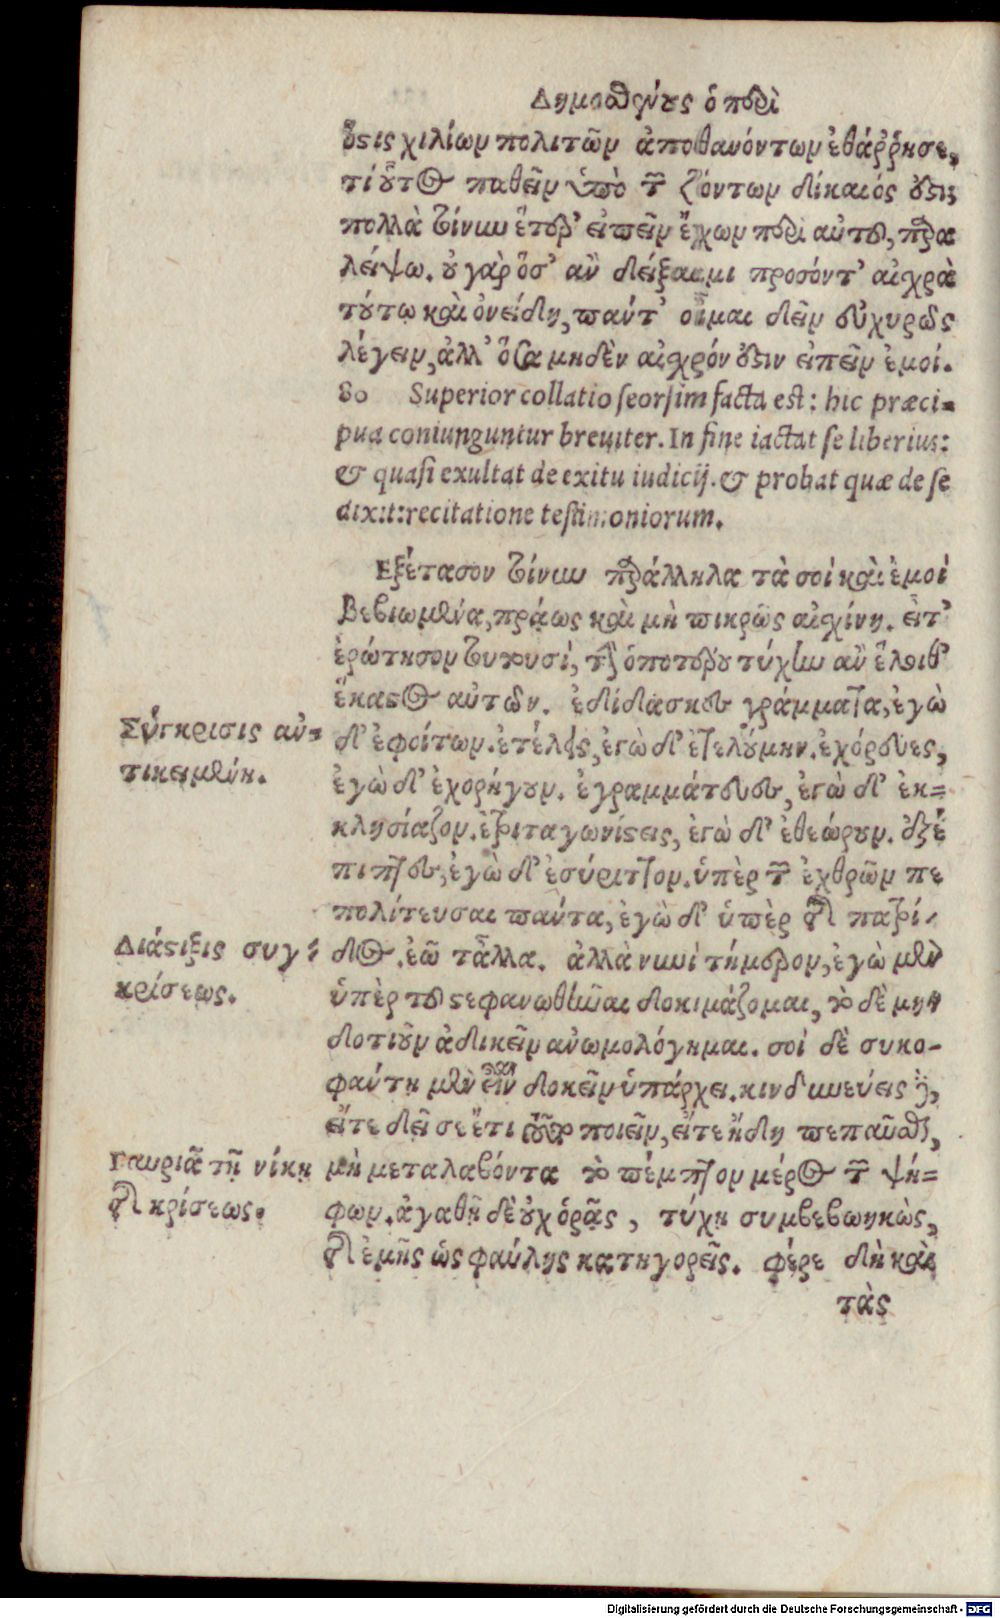 Δημοσθένους ὁ περὶ
ὅστις χιλίων πολιτῶν ἀποθανόντων ἐθάρρησε,
τί οὗτος παθεῖν ὑπὸ τῶν ζώντων δίκαιός ἐστιν;
πολλὰ τοίνυν ἕτερ' εἰπεῖν ἔχων περὶ αὐτοῦ, παρα
λείψω. οὐ γὰρ ὅσ' ἂν δείξαιμι προσόντ' αἰσχρὰ
τούτῳ καὶ ὀνείδη, πάντ' οἶμαι δεῖν εὐχερῶς
λέγειν, ἀλλ' ὅσα μηδὲν αἰσχρόν ἐστιν εἰπεῖν ἐμοί.
80 Superior collatio seorsim facta est: hic præci=
pua coniunguntur breuiter. In fine iactat se liberius:
& quasi exultat de exitu iudicij. & probat quæ de se
dixit: recitatione testimoniorum.
Ἐξέτασον τοίνυν παράλληλα τὰ σοὶ καὶ ἐμοὶ
βεβιωμένα, πράως καὶ μὴ πικρῶς αἰσχίνη. εἶτ'
ἐρώτησον τουτουσί, τὴν ὁποτέρου τύχην ἂν ἕλοιθ'
ἕκαστος αὐτῶν. ἐδίδασκες γράμματα, ἐγὼ
δ' ἐφοίτων. ἐτέλεις, ἐγὼ δ' ἐτελούμην. ἐχόρευες,
ἐγὼ δ' ἐχορήγουν. ἐγραμμάτευες, ἐγὼ δ' ἐκ=
κλησίαζον. ἐτριταγωνίστεις, ἐγὼ δ' ἐθεώρουν. ἐξέ
πιπτες, ἐγὼ δ' ἐσύριττον. ὑπὲρ τῶν ἐχθρῶν πε
πολίτευσαι πάντα, ἐγὼ δ' ὑπὲρ τῆς πατρί-
δος. ἐῶ τἆλλα. ἀλλὰ νυνὶ τήμερον, ἐγὼ μὲν
ὑπὲρ τοῦ στεφανωθῆναι δοκιμάζομαι, τὸ δὲ μηδ
δοτιοῦν ἀδικεῖν ἀνωμολόγημαι. σοὶ δὲ συκο-
φάντη μὲν εἶναι δοκεῖν ὑπάρχει. κινδυνεύεις δὲ,
εἴτε δεῖ σε ἔτι τοῦτο ποιεῖν, εἴτε ἤδη πεπαῦσθαι,
μὴ μεταλαβόντα τὸ πέμπτον μέρος τῶν ψή=
φων. ἀγαθῇ δὲ οὐχ ὁρᾷς, τύχῃ συμβεβωηκὼς,
τῆς ἐμῆς ὡς φαύλης κατηγορεῖς. φέρε δὴ καὶ
τὰς
Σύγκρισις αν=
τικειμένη.
Διάστιξις συγ=
κρίσεως.
Γαυριᾷ τῇ νίκῃ
τῆς κρίσεως.
Digitalisierung gefördert durch die Deutsche Forschungsgemeinschaft - DFG